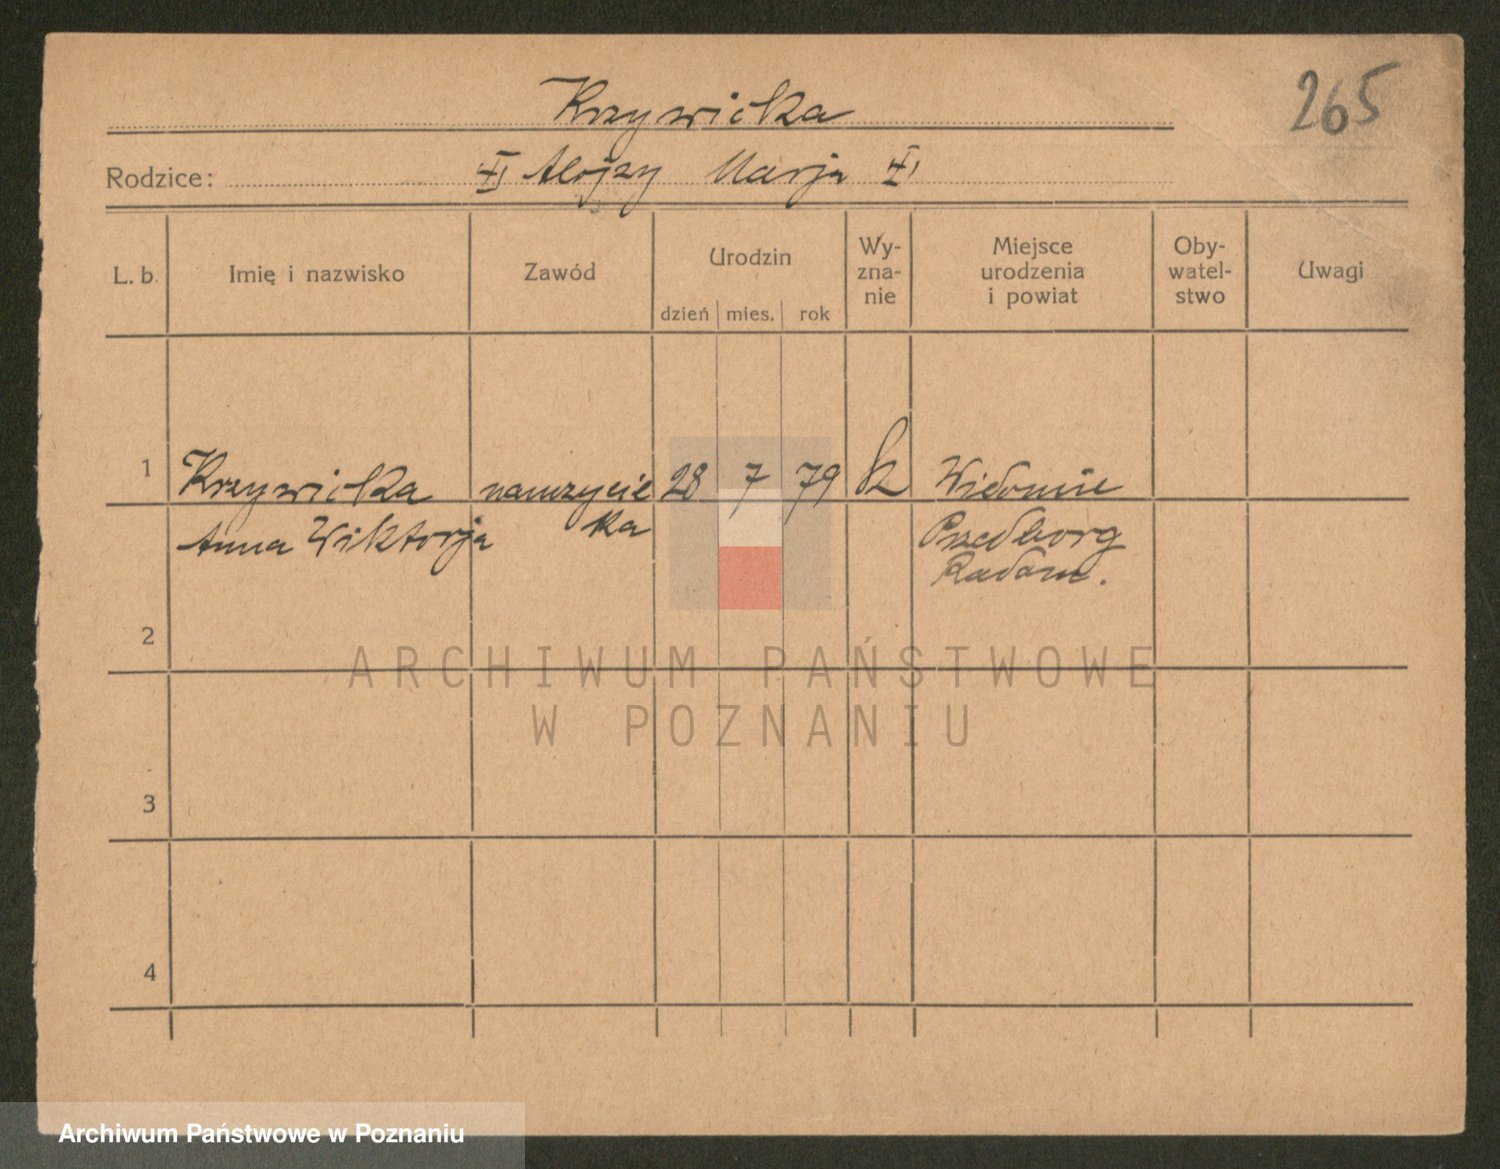 265
Krzywicka
Rodzice: Alojzy Marja
L. b. Imię i nazwisko Zawód Urodzin dzień mies. rok Wy-zna-nie Miejsce urodzenia i powiat Oby-watel-stwo Uwagi
1 Krzywicka nauczyciel 28 7 79 k Widoma
Anna Wiktorja ka Przedborg
Radom.
2
3
4
ARCHIWUM PAŃSTWOWE
W POZNANIU
Archiwum Państwowe w Poznaniu